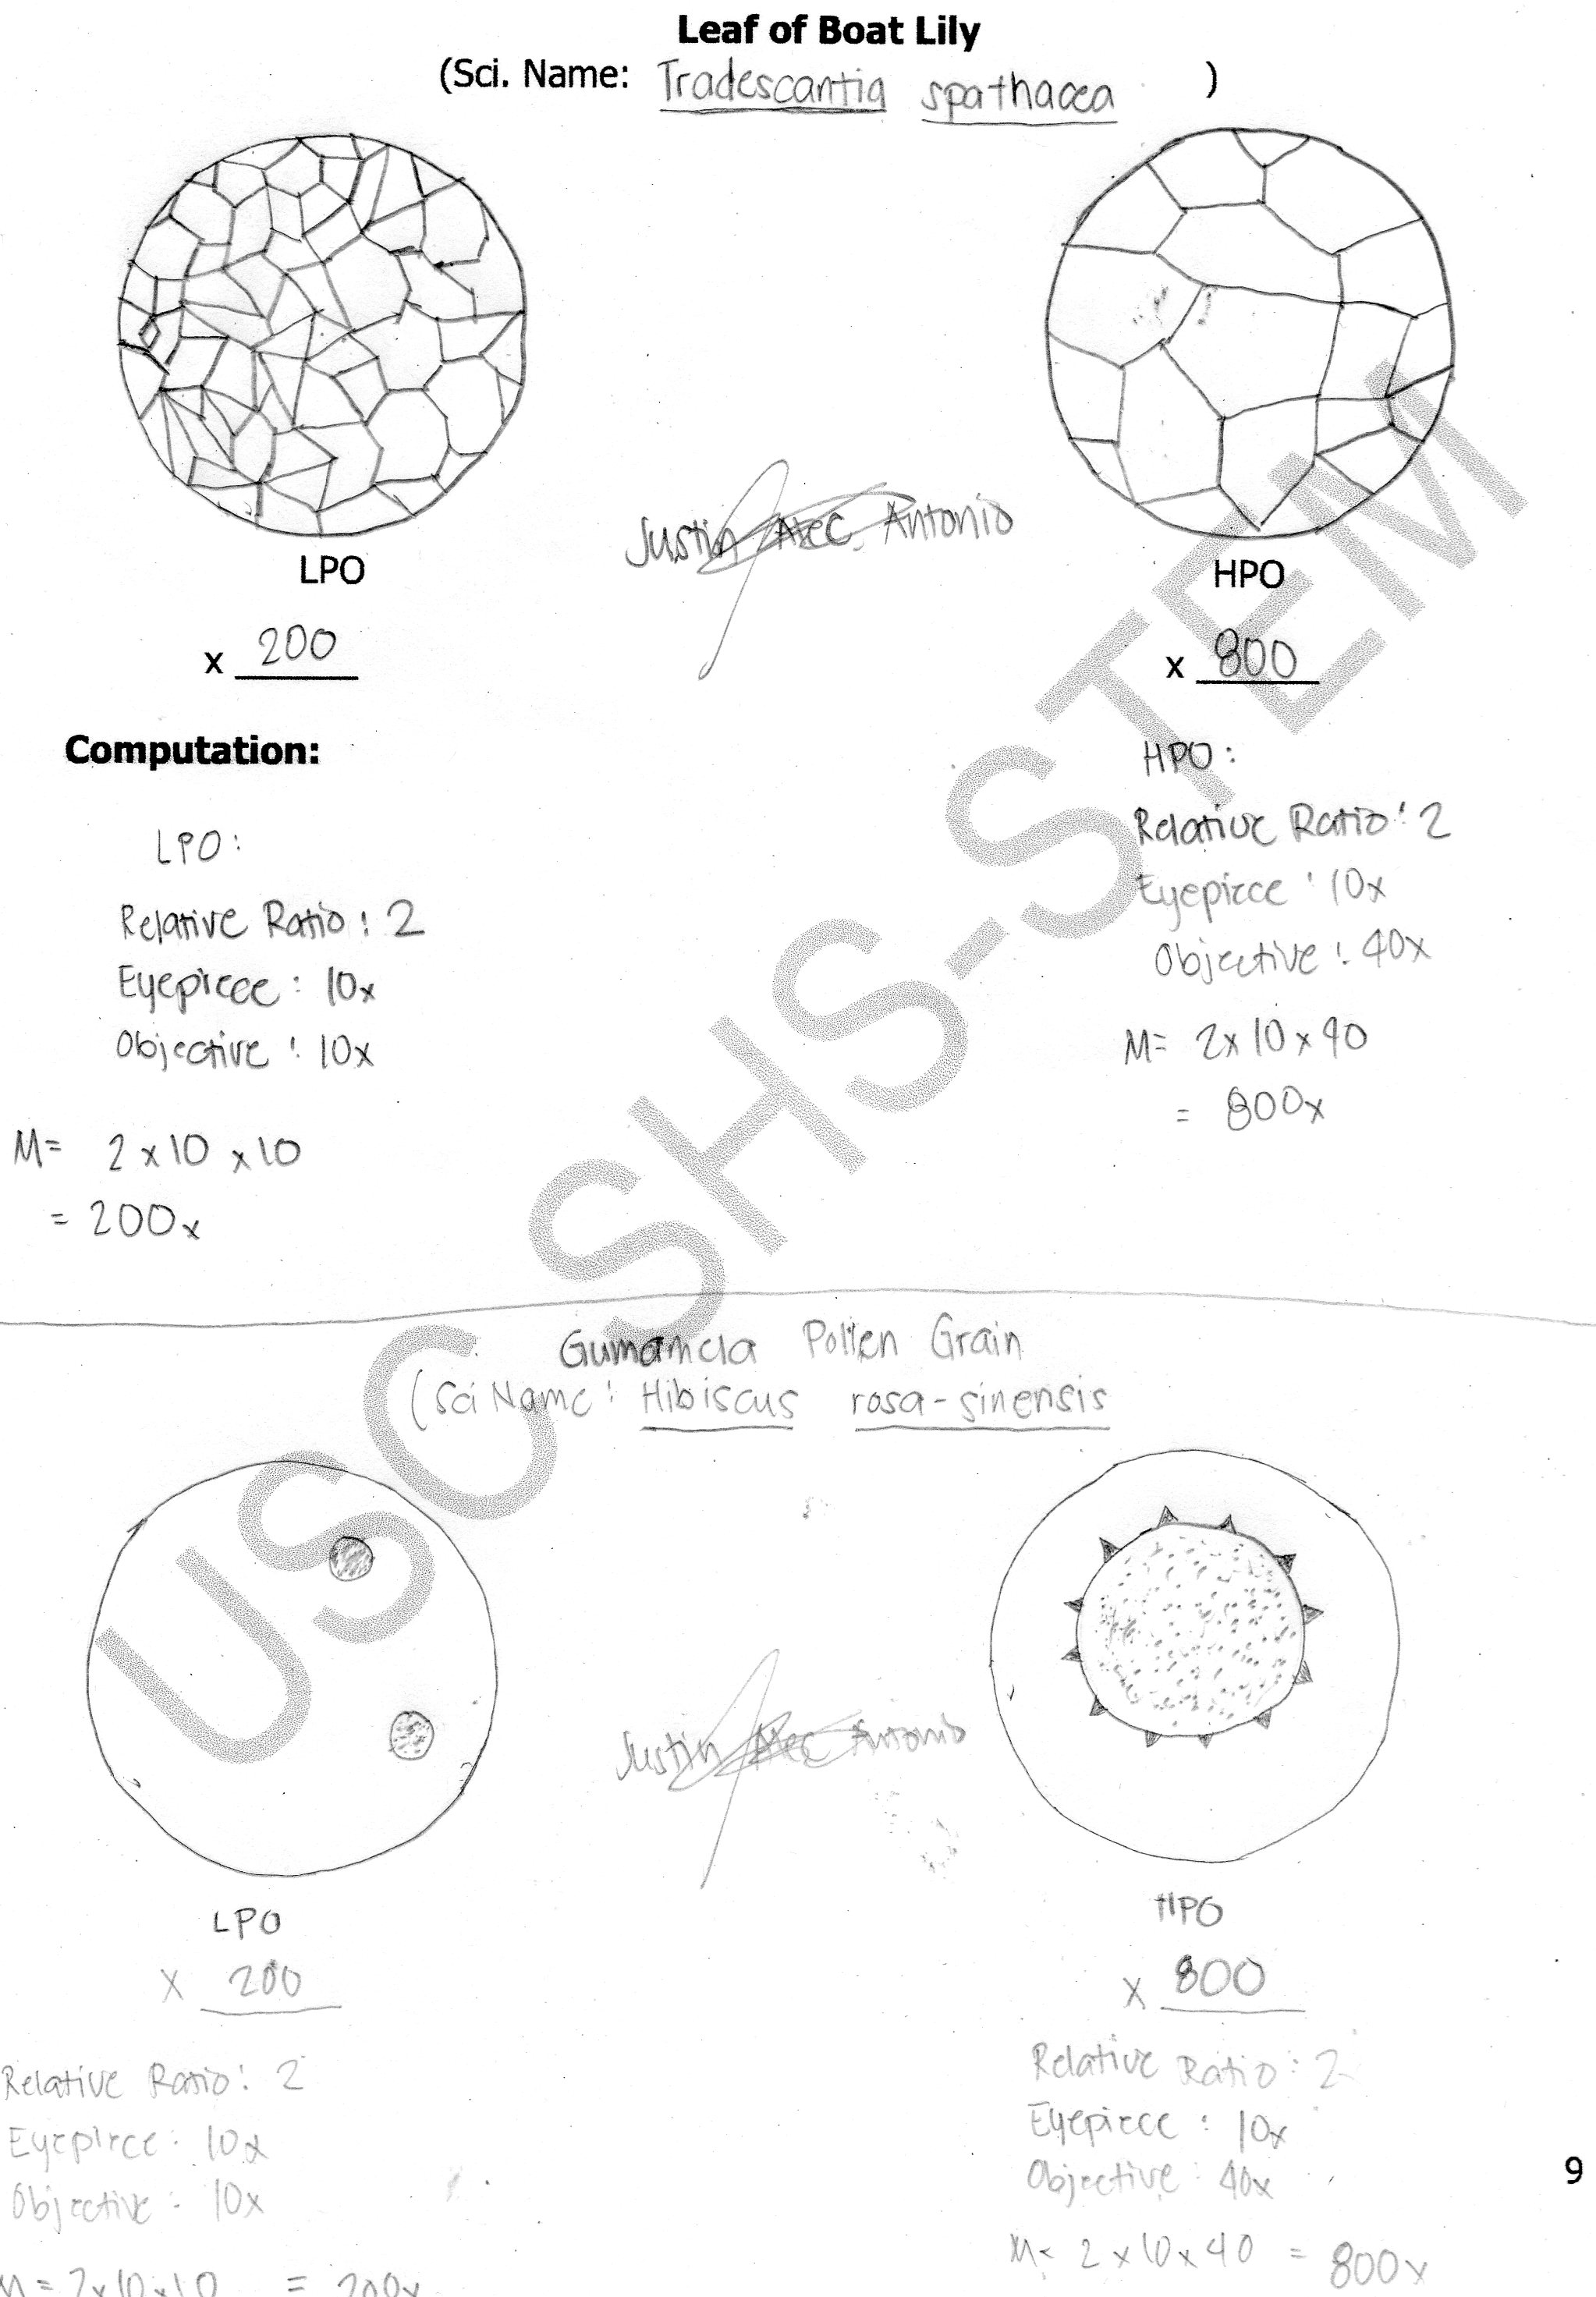 Leaf of Boat Lily
(Sci. Name: Tradescantia spathacea )
Justin Antonio
LPO
HPO
x 200
x 800
Computation:
LPO:
Relative Ratio: 2
Eyepiece: 10x
Objective: 10x
M= 2x10x10
= 200x
HPO:
Relative Ratio: 2
Eyepiece: 10x
Objective: 40x
M= 2x10x40
= 800x
USC SHS-STEM
Gumamela Pollen Grain
(Sci Name: Hibiscus rosa-sinensis
Justin Antonio
LPO
x 200
Relative Ratio: 2
Eyepiece: 10x
Objective: 10x
M= 2x10x10 = 200x
HPO
x 800
Relative Ratio: 2
Eyepiece: 10x
Objective: 40x
M= 2x10x40 = 800x
9